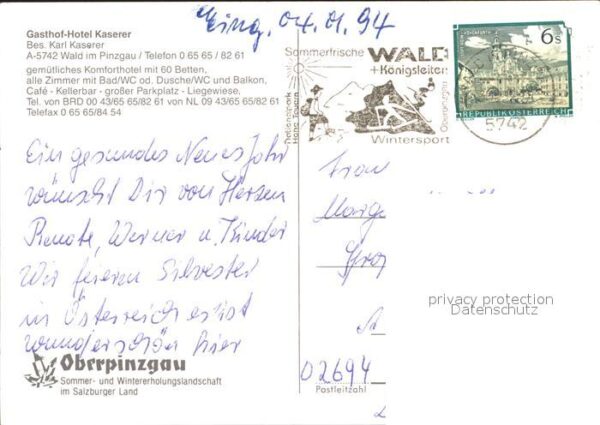 Eing. 04.01.94
Gasthof-Hotel Kaserer
Bes. Karl Kaserer
A-5742 Wald im Pinzgau / Telefon 0 65 65 / 82 61
gemütliches Komforthotel mit 60 Betten,
alle Zimmer mit Bad/WC od. Dusche/WC und Balkon,
Café - Kellerbar - großer Parkplatz - Liegewiese,
Tel. von BRD 00 43/65 65/82 61 von NL 09 43/65 65/82 61
Telefax 0 65 65/84 54
Sommerfrische WALD
+Königsleiten
Nationalpark
Hohe Tauern
Oberpinzgau
Wintersport
6 S
REPUBLIK ÖSTERREICH
5742
Ein gesundes Neues Jahr
wünscht Dir von Herzen
Renate, Werner u. Kinder
Wir feiern Silvester
in Österreich es ist
wunderschön hier
Frau
02694
Postleitzahl
Oberpinzgau
Sommer- und Wintererholungslandschaft
im Salzburger Land
privacy protection
Datenschutz